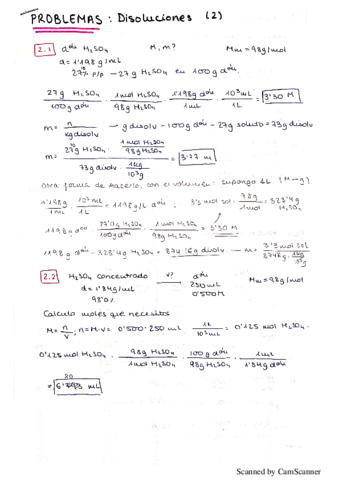 PROBLEMAS: Disoluciones (2)
2.1 dón H₂SO₄ M, m? Mm = 98g/mol
d = 1'198 g/mL
27% p/p → 27 g H₂SO₄ en 100 g dón.
27 g H₂SO₄ / 100 g dón · 1 mol H₂SO₄ / 98 g H₂SO₄ · 1'198 g dón / 1 mL · 10³ mL / 1 L = 3'30 M
m = n / kg disolv → g disolv - 100 g dón - 27 g soluto = 73 g disolv
m = 27 g H₂SO₄ · 1 mol H₂SO₄ / 98 g H₂SO₄ / 73 g disolv · 1 kg / 10³ g = 3'77 m
Otra forma de hacerlo, con el volumen: supongo 1L. (M→g)
1'198 g / 1 mL · 10³ mL / 1 L = 1198 g/L dón ; 3'3 mol sol · 98 g / 1 mol = 323'4 g H₂SO₄
1198 g dón · 27'0 g H₂SO₄ / 100 g dón · 1 mol H₂SO₄ / 98 g H₂SO₄ = 3'30 M
1198 g dón - 323'4 g H₂SO₄ = 874'6 g disolv → m = 3'3 mol sol / 874'6 g · 1 kg / 10³ g
2.2 H₂SO₄ concentrado V? dón Mm = 98 g/mol
d = 1'84 g/mL 250 mL
98'0% 0'500 M
Calculo moles que necesito
M = n / V ; n = M·V = 0'500 · 250 mL · 1 L / 10³ mL = 0'125 mol H₂SO₄.
0'125 mol H₂SO₄ · 98 g H₂SO₄ / 1 mol H₂SO₄ · 100 g dón / 98 g H₂SO₄ · 1 mL / 1'84 g dón
= mL
Scanned by CamScanner